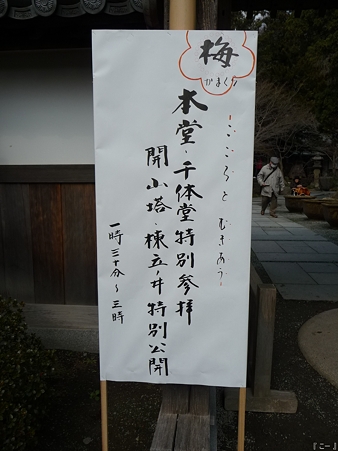 梅
かまくら
こころと むきあう
本堂・千体堂特別参拝
開山塔・棟立ノ井特別公開
一時三十分～三時
『こー』